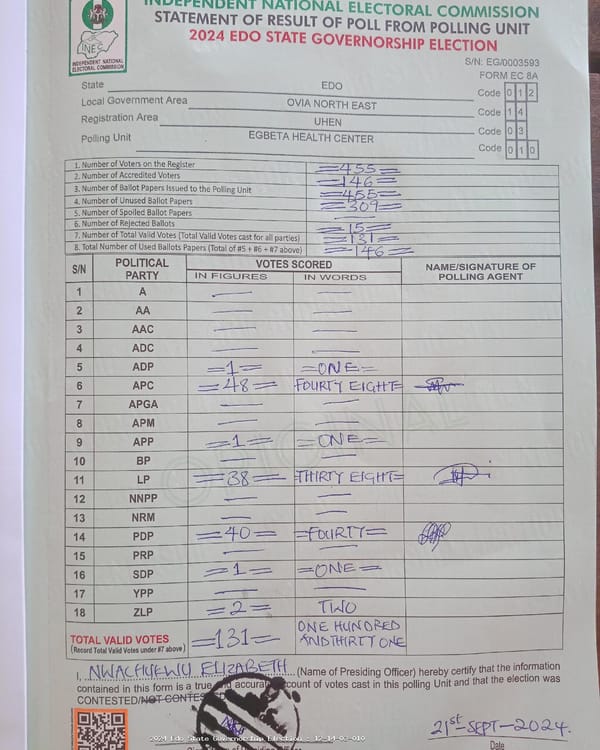 INDEPENDENT NATIONAL ELECTORAL COMMISSION
STATEMENT OF RESULT OF POLL FROM POLLING UNIT
2024 EDO STATE GOVERNORSHIP ELECTION
INEC
INDEPENDENT NATIONAL ELECTORAL COMMISSION
S/N: EG/0003593
FORM EC 8A
State EDO Code 0 1 2
Local Government Area OVIA NORTH EAST Code 1 4
Registration Area UHEN Code 0 3
Polling Unit EGBETA HEALTH CENTER Code 0 1 0
1. Number of Voters on the Register =455=
2. Number of Accredited Voters =146=
3. Number of Ballot Papers Issued to the Polling Unit =455=
4. Number of Unused Ballot Papers =309=
5. Number of Spoiled Ballot Papers —
6. Number of Rejected Ballots =15=
7. Number of Total Valid Votes (Total Valid Votes cast for all parties) =131=
8. Total Number of Used Ballots Papers (Total of #5 + #6 + #7 above) =146=
S/N POLITICAL PARTY VOTES SCORED NAME/SIGNATURE OF POLLING AGENT
IN FIGURES IN WORDS
1 A — —
2 AA — —
3 AAC — —
4 ADC — —
5 ADP =1= =ONE=
6 APC =48= FOURTY EIGHT=
7 APGA — —
8 APM — —
9 APP =1= =ONE=
10 BP — —
11 LP =38= =THIRTY EIGHT=
12 NNPP — —
13 NRM — —
14 PDP =40= =FOURTY=
15 PRP — —
16 SDP =1= =ONE=
17 YPP — —
18 ZLP =2= TWO
TOTAL VALID VOTES =131= ONE HUNDRED
(Record Total Valid Votes under #7 above) AND THIRTY ONE
I, NWACHUKWU ELIZABETH (Name of Presiding Officer) hereby certify that the information
contained in this form is a true and accurate account of votes cast in this polling Unit and that the election was
CONTESTED/NOT CONTESTED
21st-SEPT-2024.
2024 Edo State Governorship Election - 12-14-03-010
Date